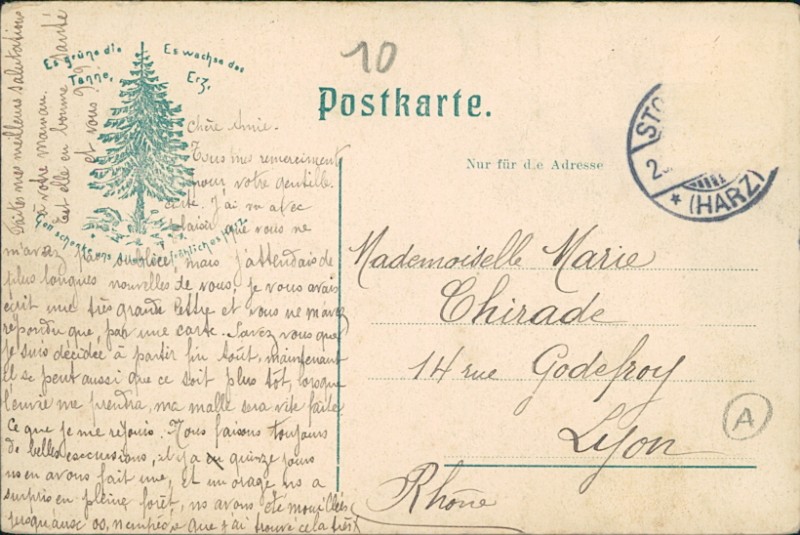 Es grüne die
Tanne,
Es wachse das
Erz,
Gott schenke uns Allen ein fröhliches Herz.
10
Postkarte.
Nur für die Adresse
STO
2
* (HARZ)
Chère Amie.
Tous mes remerciments
pour votre gentille
carte. J'ai vu avec
plaisir que vous ne
m'avez pas oubliée, mais j'attendais de
plus longues nouvelles de vous, je vous avais
écrit une très grande lettre et vous ne m'avez
répondu que par une carte. Savez vous que
je suis décidée à partir fin Août, maintenant
il se peut aussi que ce soit plus tôt, lorsque
l'envie me prendra, ma malle sera vite faite
Ce que je me réjouis. Nous faisons toujours
de belles excursions, il y a quinze jours
ns en avons fait une, et un orage ns a
surpris en pleine forêt, ns avons été mouillées
jusqu'aux os, n'empêche que j'ai trouvé cela très
Faites mes meilleurs salutations
à votre maman.
Est elle en bonne santé
et vous?
Mademoiselle Marie
Chirade
14 rue Godefroy
Lyon
Rhône
A